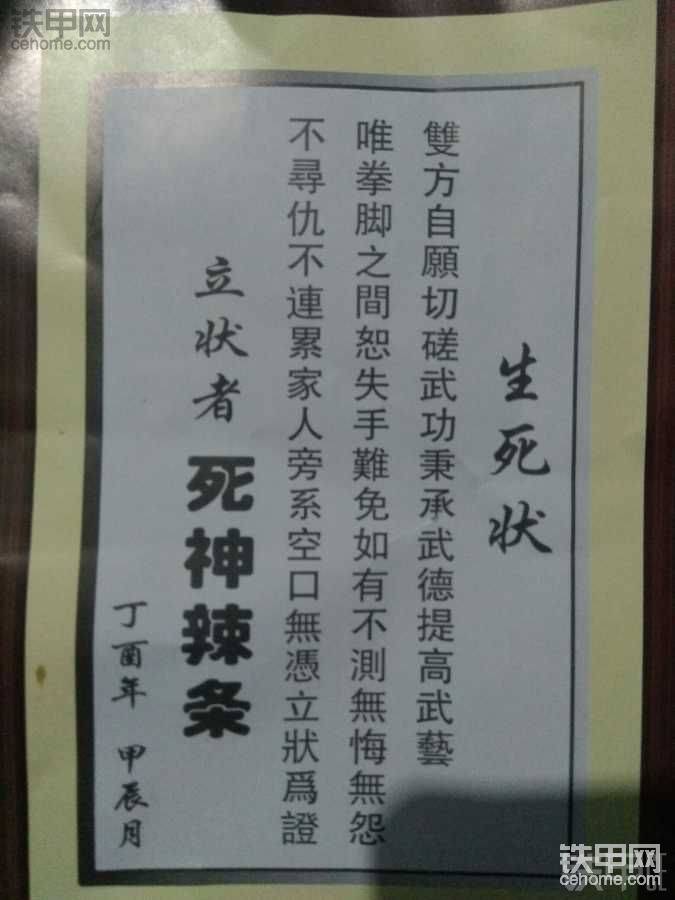 铁甲网
cehome.com
生死状
雙方自願切磋武功秉承武德提高武藝
唯拳脚之間恕失手難免如有不測無悔無怨
不尋仇不連累家人旁系空口無憑立狀爲證
立状者 死神辣条
丁酉年 甲辰月
铁甲网
cehome.com